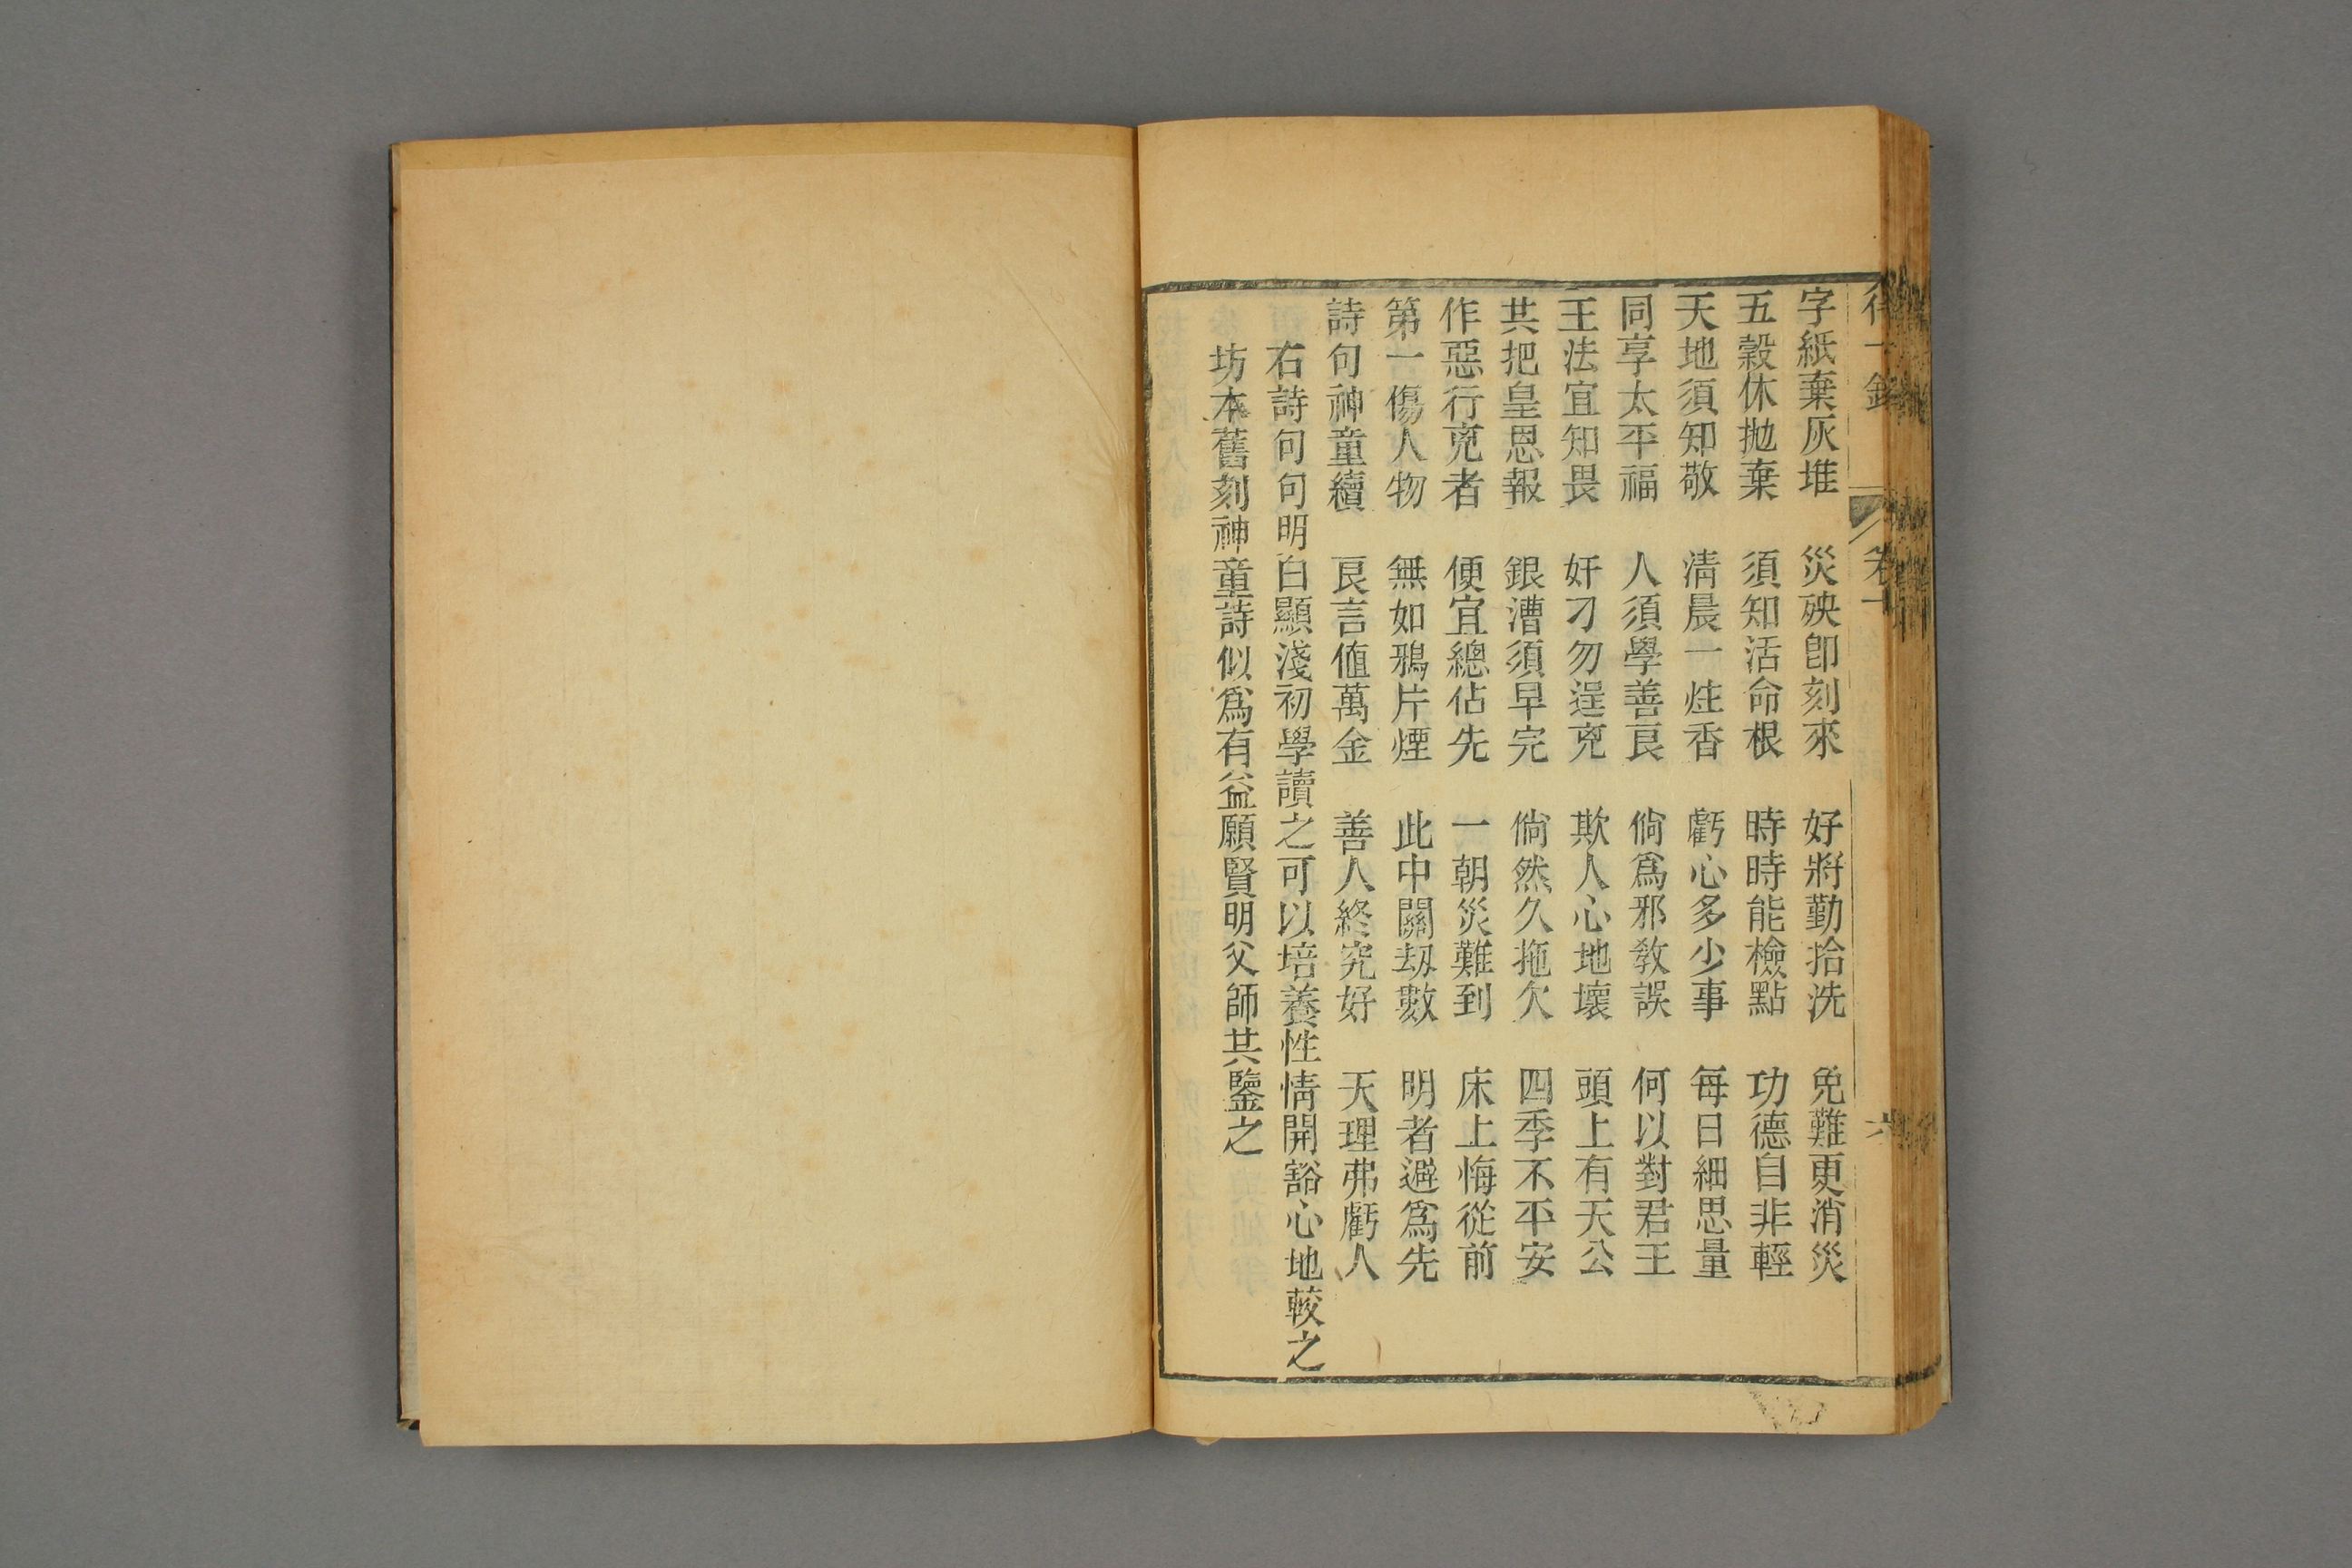 得一錄 卷十 六
字紙棄灰堆 災殃卽刻來 好將勤拾洗 免難更消災
五穀休拋棄 須知活命根 時時能檢點 功德自非輕
天地須知敬 淸晨一炷香 虧心多少事 每日細思量
同享太平福 人須學善良 倘爲邪敎誤 何以對君王
王法宜知畏 奸刁勿逞兇 欺人心地壞 頭上有天公
共把皇恩報 銀漕須早完 倘然久拖欠 四季不平安
作惡行兇者 便宜總佔先 一朝災難到 床上悔從前
第一傷人物 無如鴉片煙 此中關刼數 明者避爲先
詩句神童續 良言值萬金 善人終究好 天理弗虧人
右詩句句明白顯淺初學讀之可以培養性情開豁心地較之
坊本舊刻神童詩似爲有益願賢明父師共鑒之